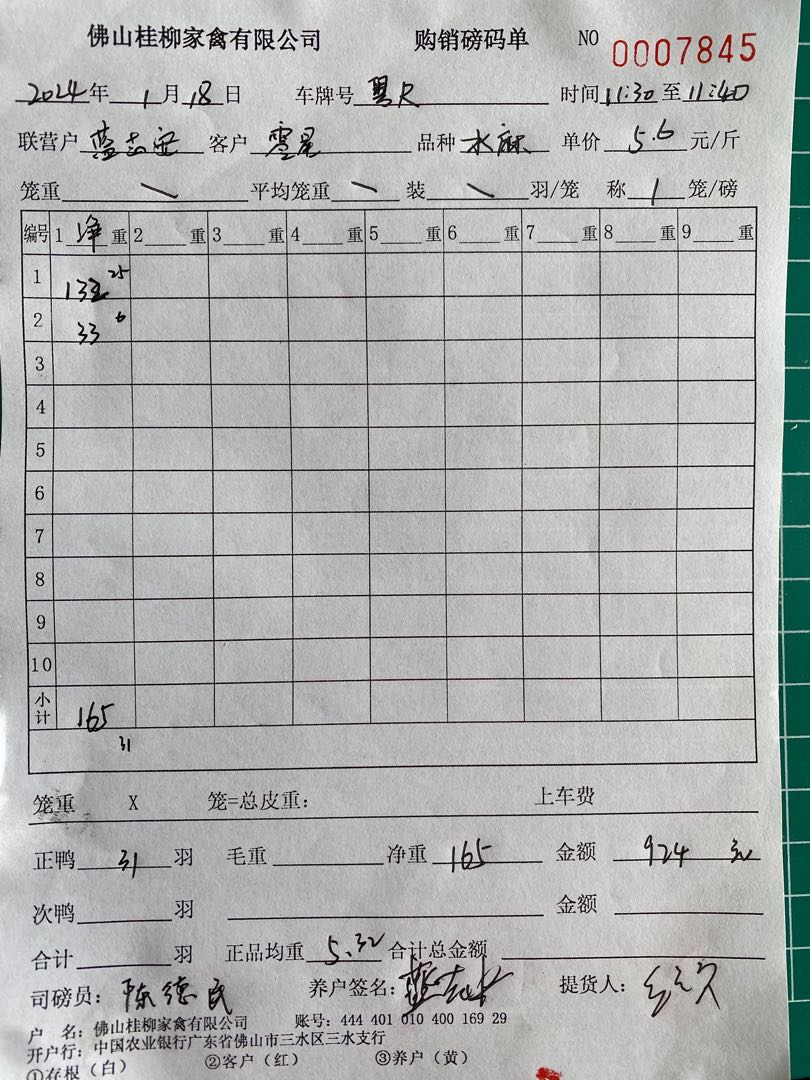 佛山桂柳家禽有限公司 购销磅码单 NO 0007845
2024年1月18日 车牌号 时间11:30至11:40
联营户 蓝志 客户 零星 品种 水麻 单价 5.6 元/斤
笼重 \ 平均笼重 \ 装 \ 羽/笼 称 1 笼/磅
编号 1 净 重 2 重 3 重 4 重 5 重 6 重 7 重 8 重 9 重
1 132 25
2 33 6
3
4
5
6
7
8
9
10
小计 165
31
笼重 X 笼=总皮重: 上车费
正鸭 31 羽 毛重 净重 165 金额 924 元
次鸭 羽 金额
合计 羽 正品均重 5.32 合计总金额
司磅员: 陈德民 养户签名: 提货人:
户 名: 佛山桂柳家禽有限公司 账号: 444 401 010 400 169 29
开户行: 中国农业银行广东省佛山市三水区三水支行
①存根(白) ②客户(红) ③养户(黄)